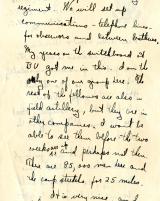 regiment. We will set up
communications - telephone lines
for observers and between batteries.
My years on the switchboard at
BU got me in this. I am the
only one of our group here. The
rest of the fellows are also in
field artillery, but they are in
other companies. I won't be
able to see them before the two
weeks and perhaps not then.
There are 85,000 men here and
the camp stretches for 25 miles.
It is very nice, and